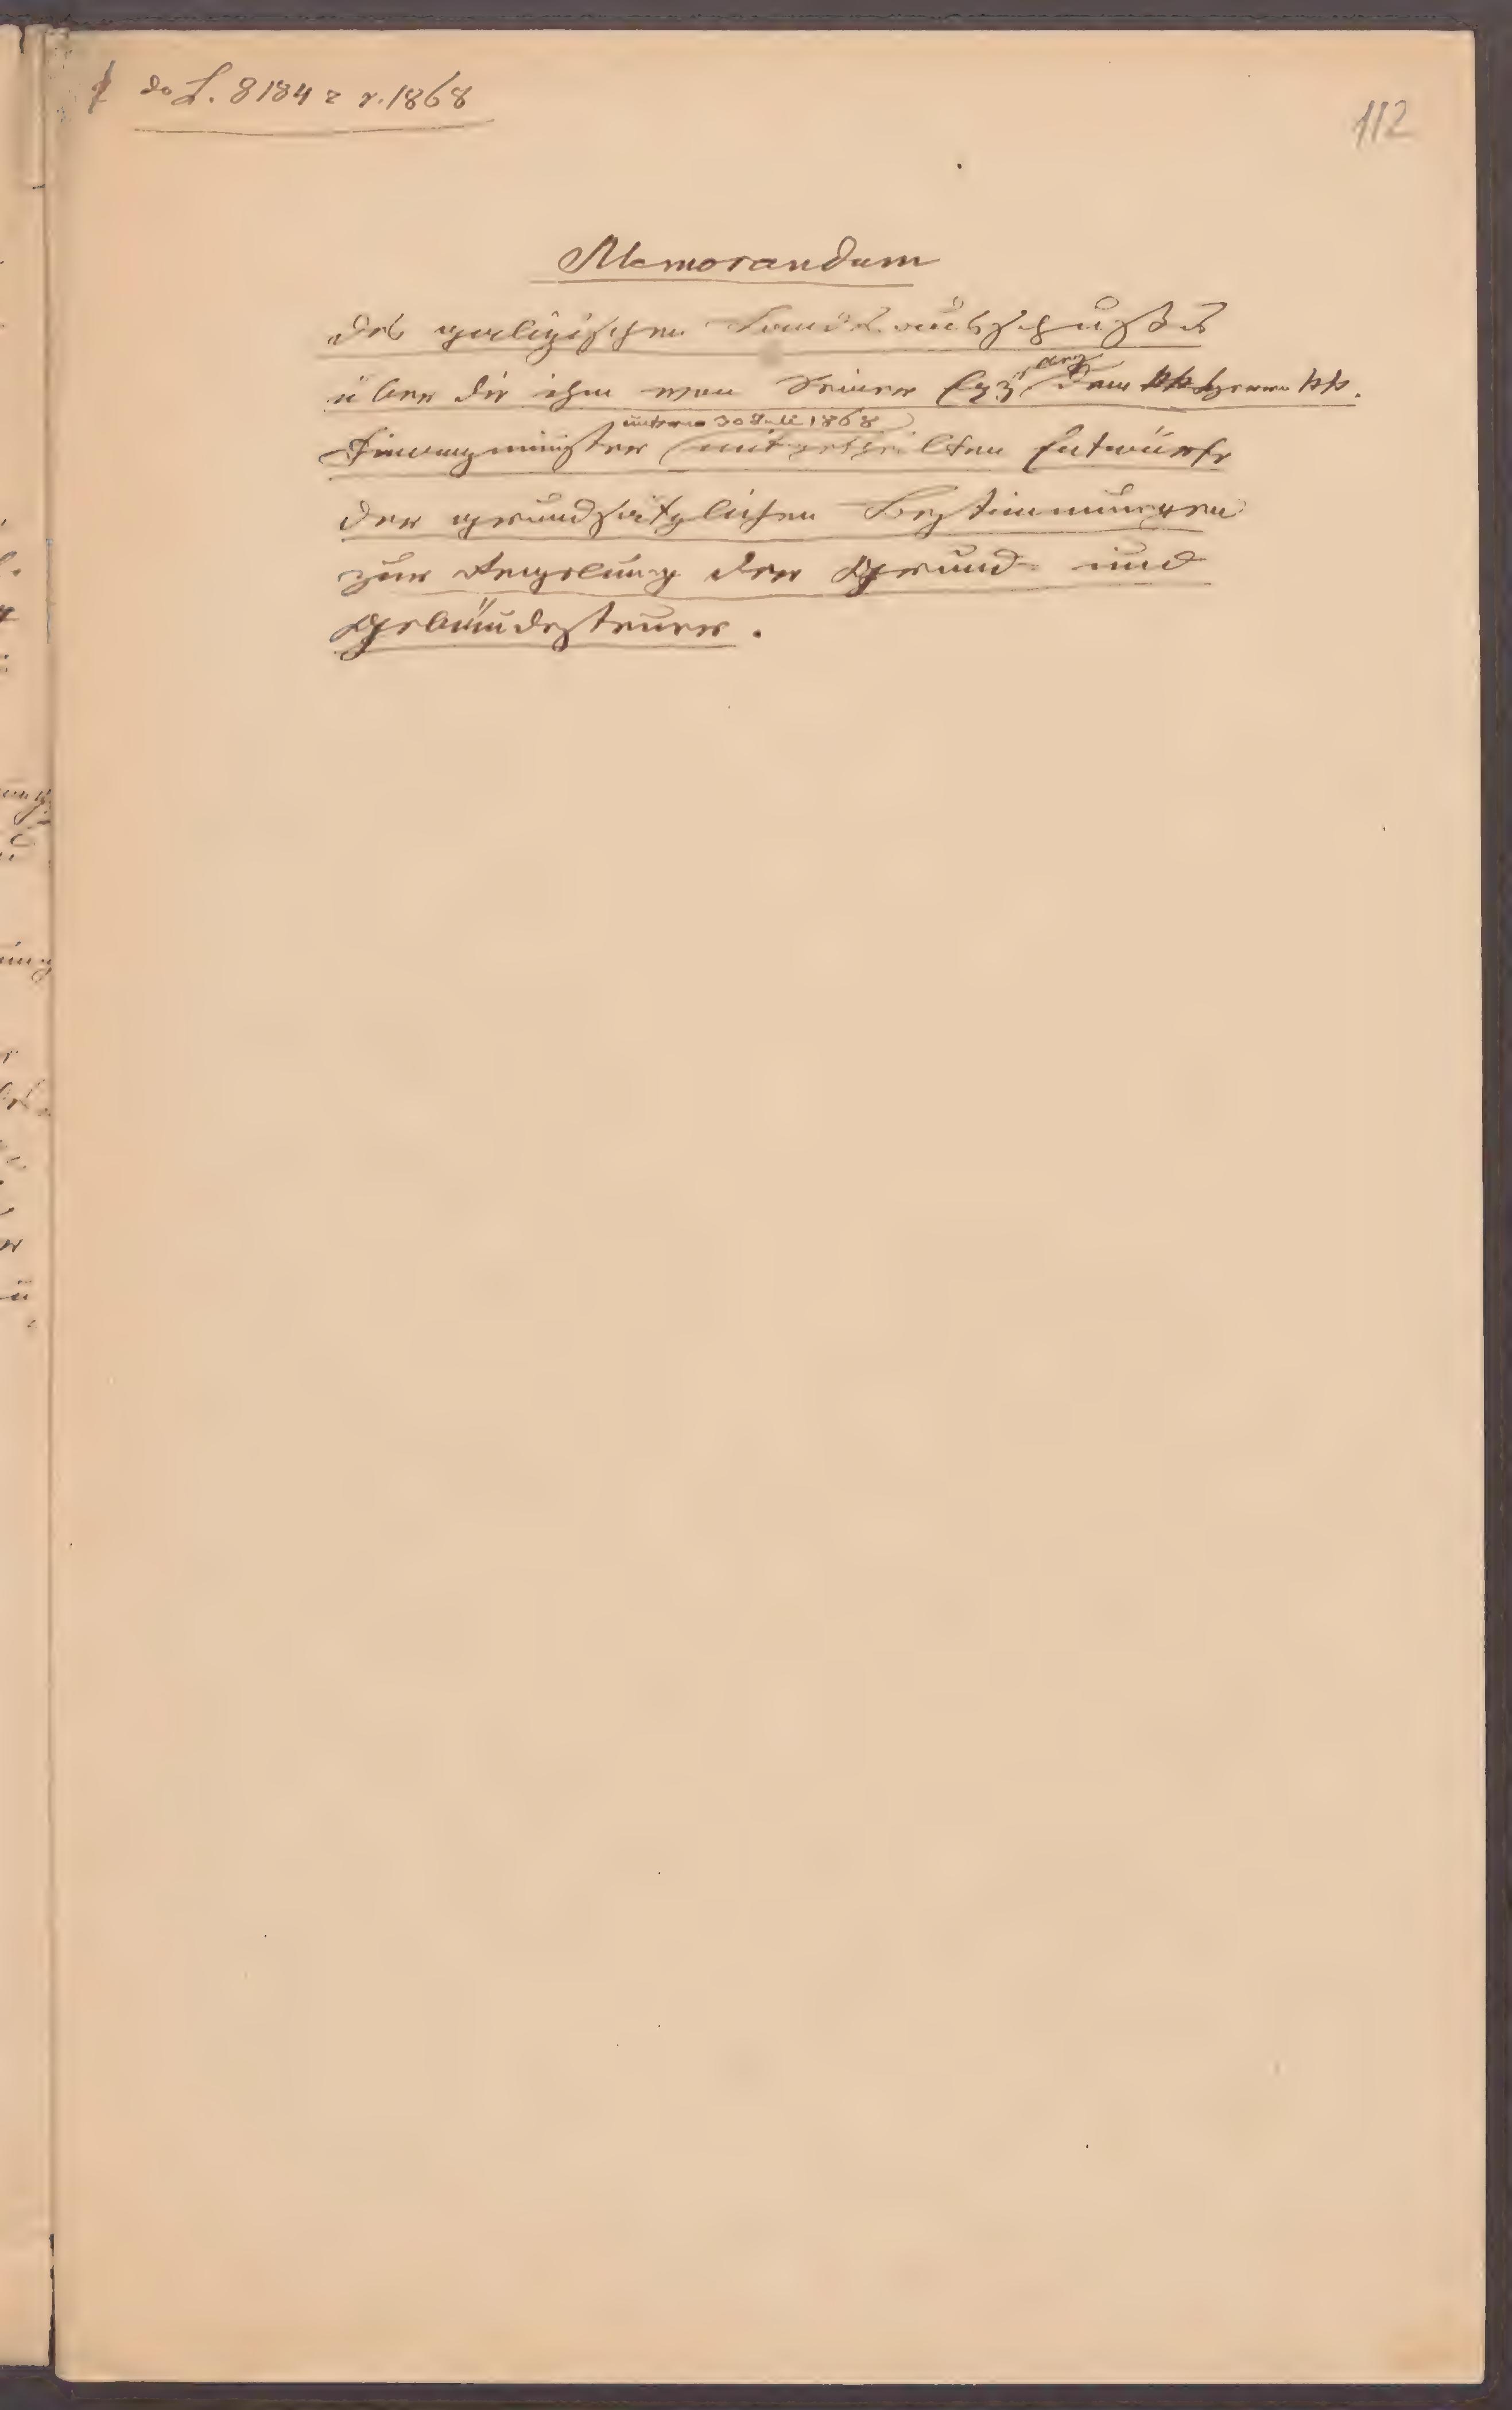 do L. 8184 z r. 1868
112
Memorandum
des galizischen Landesausschußes
über die ihm von Seiner Exz dem Herrn kk.
Finanzminister unterm 30 Juli 1868 mitgetheilten Entwürfe
der grundsätzlichen Bestimmungen
zur Regelung der Grund- und
Gebäudesteuer.